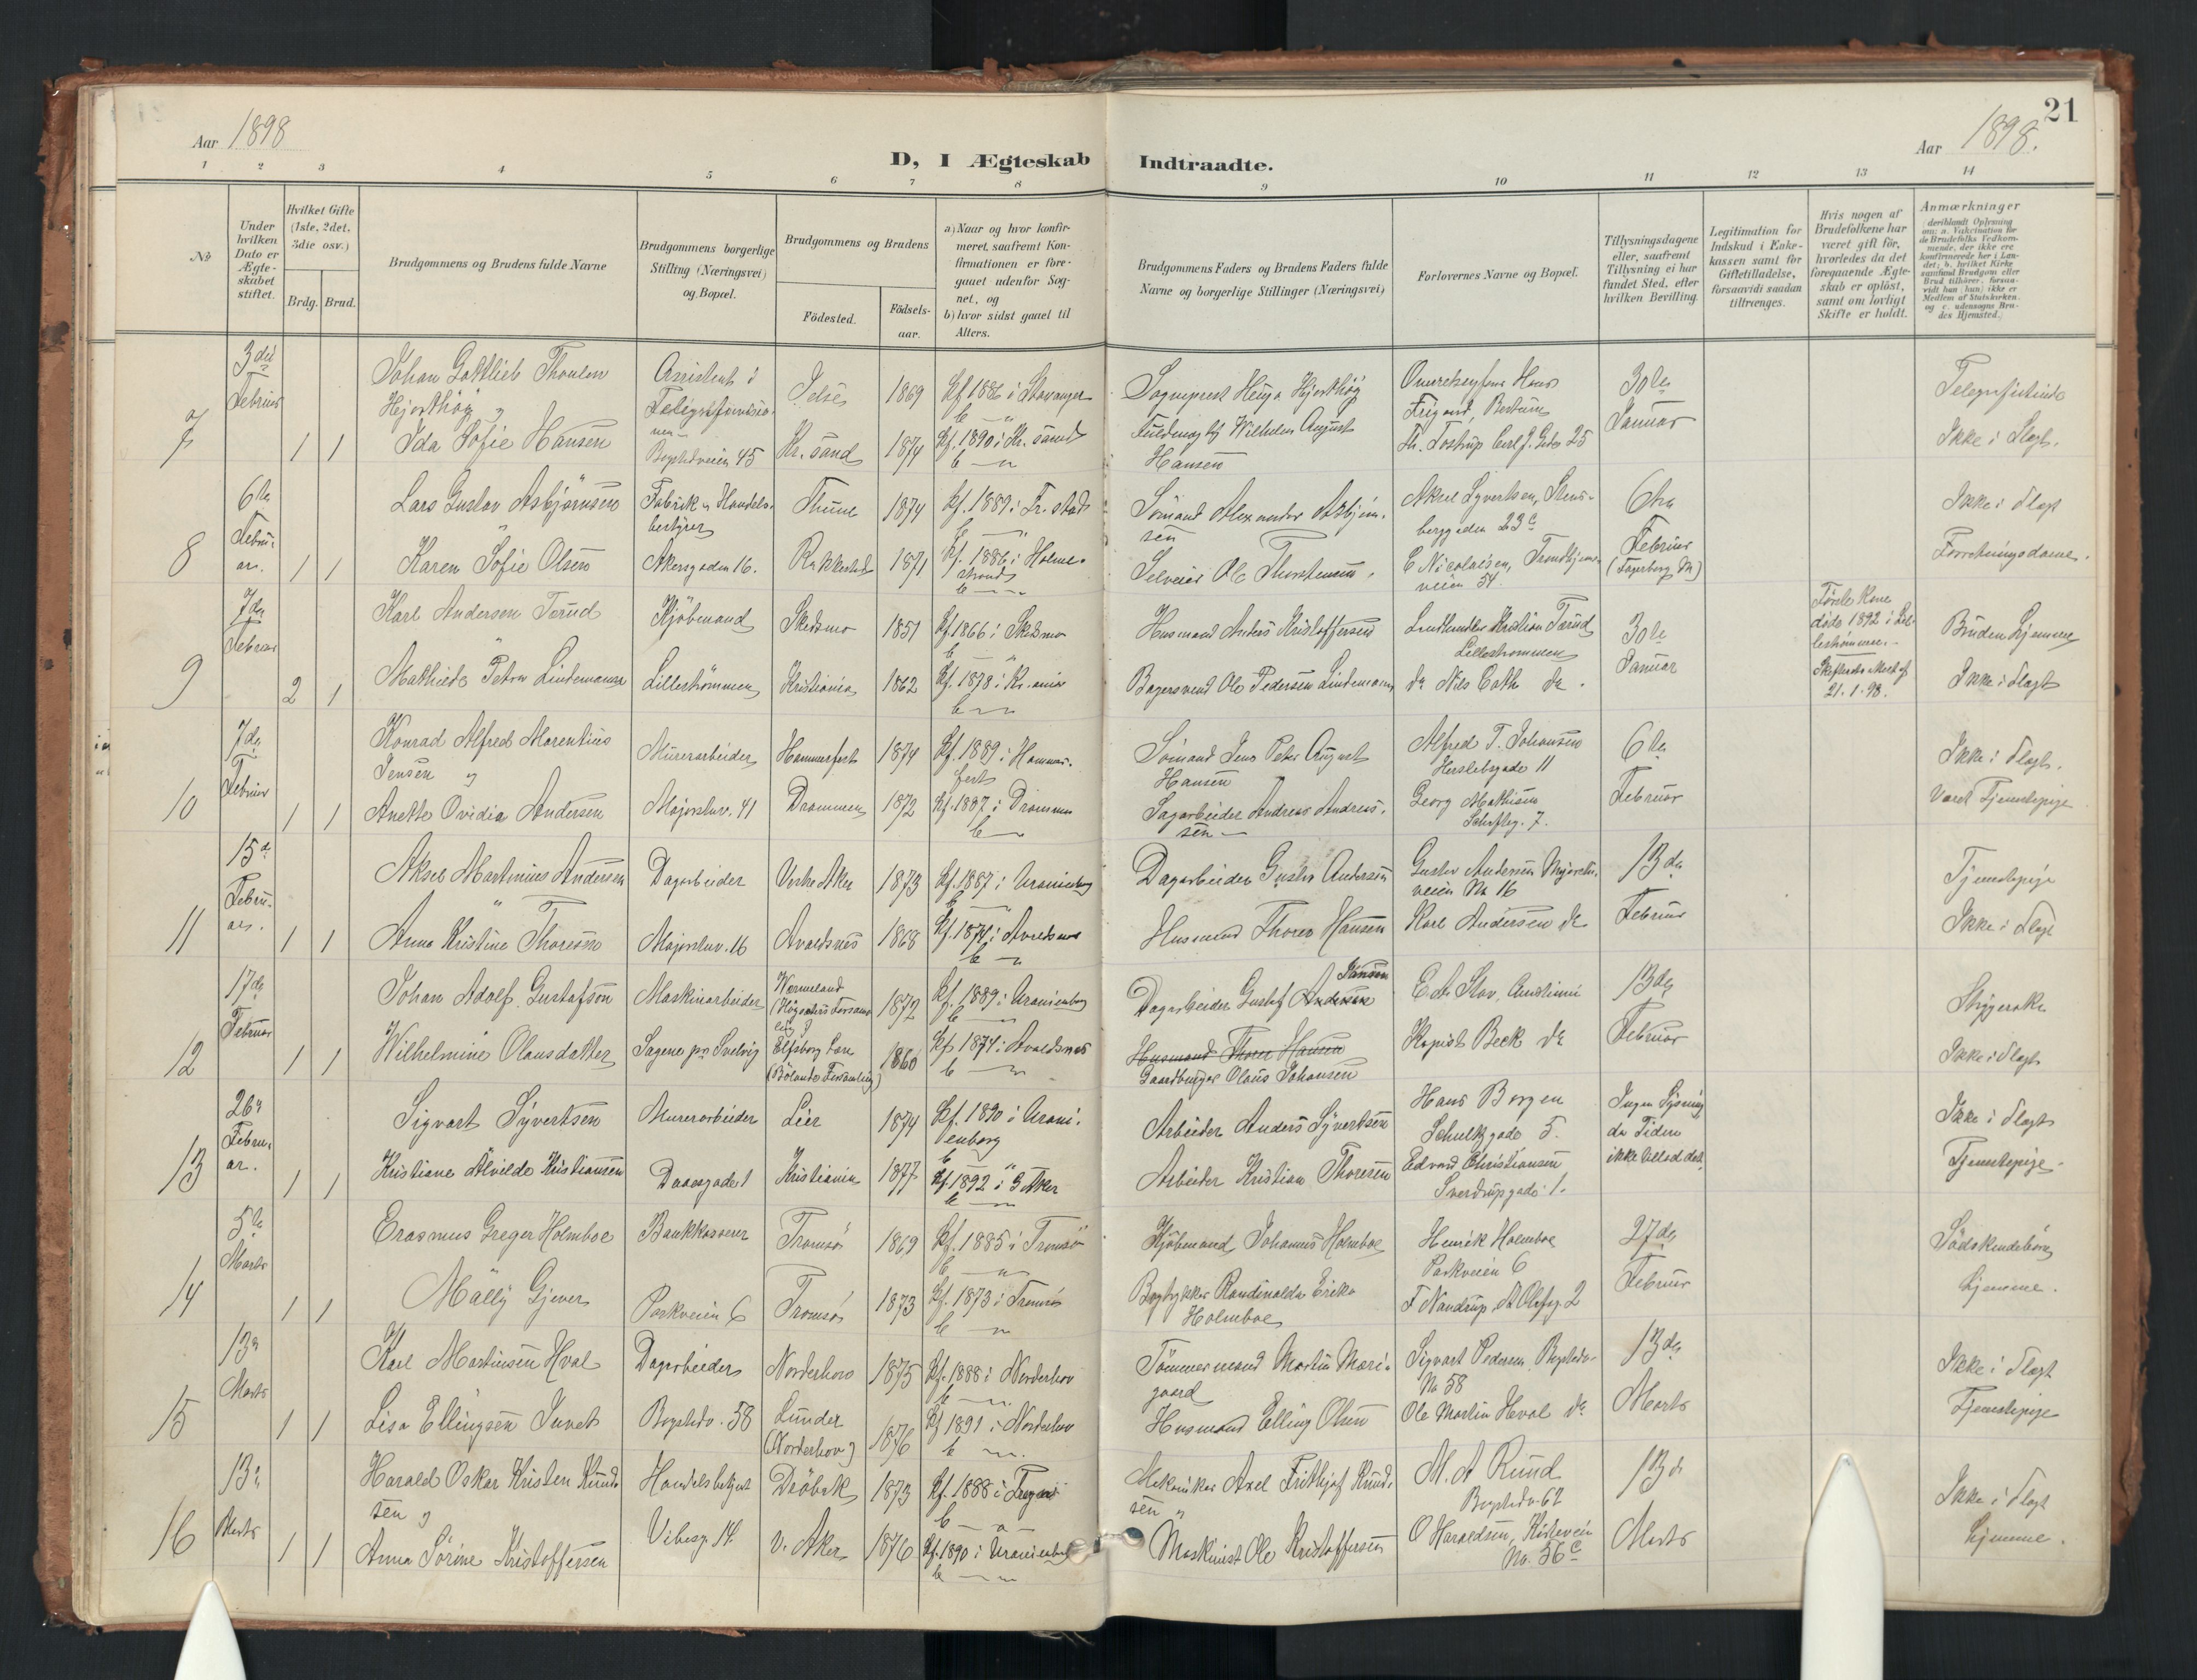 21
Aar 1898
Aar 1898.
D, I Ægteskab Indtraadte.
1 2 3 4 5 6 7 8 9 10 11 12 13 14
No
Under hvilken Dato er Ægteskabet stiftet.
Hvilket Gifte (1ste, 2det, 3die osv.)
Brdg. Brud.
Brudgommens og Brudens fulde Navne
Brudgommens borgerlige Stilling (Næringsvei) og Bopæl.
Brudgommens og Brudens
Födested.
Födselsaar.
a) Naar og hvor konfirmeret, saafremt Konfirmationen er foregaaet udenfor Sognet, og
b) hvor sidst gaaet til Alters.
Brudgommens Faders og Brudens Faders fulde Navne og borgerlige Stillinger (Næringsvei)
Forlovernes Navne og Bopæl.
Tillysningsdagene eller, saafremt Tillysning ei har fundet Sted, efter hvilken Bevilling.
Legitimation for Indskud i Enkekassen samt for Giftetilladelse, forsaavidt saadan tiltrænges.
Hvis nogen af Brudefolkene har været gift för, hvorledes da det foregaaende Ægteskab er oplöst, samt om lovligt Skifte er holdt.
Anmærkninger
7
3die Februar
1 1
Johan Gottlieb Thoulow
Hjorthöy og
Ida Sofie Hansen
Assistent i
Bogstadveien 45
Jelse 1869 Kf. 1886 i Stavanger
Kr. sand 1874 Kf. 1890 i Kr. sand
Sogneprest Hjorthöy
Fuldmægtig Wilhelm August
Hansen
Th. Tostrup Carl J. Gade 25
30te
Januar
Telegrafistinde
Ikke i Slægt.
8
6te Februar.
1 1
Lars Gustav Asbjörnsen
Karen Sofie Olsen
Fabrik og Handelsbestyrer
Akersgaden 16.
Thune 1874 Kf. 1889 i Fr. stad
Rakkestad 1871 Kf. 1886 i Holmestrand
Sömand Alexander Asbjörnsen
Selveier Ole Thorstensen.
Aksel Syvertsen, Stensberggaden 23c
C Nicolaisen, Trondhjemsveien 54
6te
Februar
(Fagerborg M)
Ikke i Slægt
Forretningsdame.
9
7de Februar
2 1
Karl Andersen Tærud
Mathilde Petra Lindemann
Kjöbmand
Lilleströmmen
Skedsmo 1851 Kf. 1866 i Skedsmo
Kristiania 1862 Kf. 1878 i Kr. ania
Husmand Anders Kristoffersen
Bagersvend Ole Pedersen Lindemann
Landhandler Kristian Tærud
Lilleströmmen
do Nils Cath do.
30te
Januar
Förste Kone
döde 1892 i Lilleströmmen.
21.1.98.
Bruden hjemme
Ikke i Slægt
10
7de Februar
1 1
Konrad Alfred Marentius
Jensen og
Anette Ovidia Andersen
Murerarbeider
Majorstuv. 41
Hammerfest 1874 Kf. 1889 i Hammerfest
Drammen 1872 Kf. 1887 i Drammen
Sömand Jens Peter August
Hansen
Sagarbeider Andreas Andreassen
Alfred T. Johansen
Herslebsgade 11
Georg Mathisen
Schoftsg. 7.
6te
Februar
Ikke i Slægt.
Været Tjenestepige
11
15de Februar.
1 1
Aksel Martinius Andersen
Anna Kristine Thoresen
Dagarbeider
Majorstuv. 16
Vestre Aker 1873 Kf. 1887 i Uranienborg
Avaldsnes 1868 Kf. 1874 i Avaldsnes
Dagarbeider Gustav Andersen
Husmand Thorer Hansen
Gustav Andersen Majorstuveien No 16
Karl Andersen do
13de
Februar
Tjenestepige
Ikke i Slægt
12
17de Februar
1 1
Johan Adolf Gustafson
Wilhelmine Olausdatter
Maskinarbeider
Wermeland
Elfsborg Län
(Bölands Forsamling)
1872 Kf. 1889 i Uranienborg
1860 Kf. 1874 i Avaldsnes
Dagarbeider Gustaf Andersen Jansson
Husmand Thorer Hansen
Gaardbruger Olaus Johansen
Kopist Beck do
13de
Februar
Strygerske
Ikke i Slægt
13
26de Februar.
1 1
Sigvart Syvertsen
Kristiane Alvilde Kristiansen
Murerarbeider
Daaesgade 1
Lier 1874 Kf. 1890 i Uranienborg
Kristiania 1877 Kf. 1892 i G Aker
Arbeider Anders Syvertsen
Arbeider Kristian Thoresen
Hans Borgen
Schultzgade 5.
Edvard Christiansen
Sverdrupsgade 1.
Ingen Lysning
da Tiden
ikke tillod det.
Ikke i Slægt
Tjenestepige
14
5te Marts
1 1
Erasmus Greger Holmboe
Mally Gjæver
Bankkasserer
Parkveien 6
Tromsö 1869 Kf. 1885 i Tromsö
Tromsö 1873 Kf. 1873 i Tromsö
Kjöbmand Johannes Holmboe
Holmboe
Henrik Holmboe
Parkveien 6
F Nandrup, St Olafsg. 2
27de
Februar
Södskendebörn
hjemme.
15
13de Marts
1 1
Karl Martinsen Hval
Lisa Ellingsen Juvet
Dagarbeider
Bogstadv. 58
Norderhov 1875 Kf. 1888 i Norderhov
Lunder
(Norderhov) 1876 Kf. 1891 i Norderhov
Tömmermand Martin Morigaard
Husmand Elling Olsen
Sigvart Pedersen Bogstadv.
No 58
Ole Martin Hval do
13de
Marts
Ikke i Slægt
Tjenestepige
16
13de Marts
1 1
Harald Oskar Kristen Knudsen og
Anna Sörine Kristoffersen
Handelsbetjent
Vibesg. 14.
Dröbak 1873 Kf. 1888 i
V. Aker 1876 Kf. 1890 i Uranienborg
Mekaniker Axel Frithjof Knudsen
Maskinist Ole Kristoffersen
M. A Rund
Bogstadv. 62
O Haraldsen, Kirkeveien
No. 56c
13de
Marts
Ikke i Slægt
hjemme.